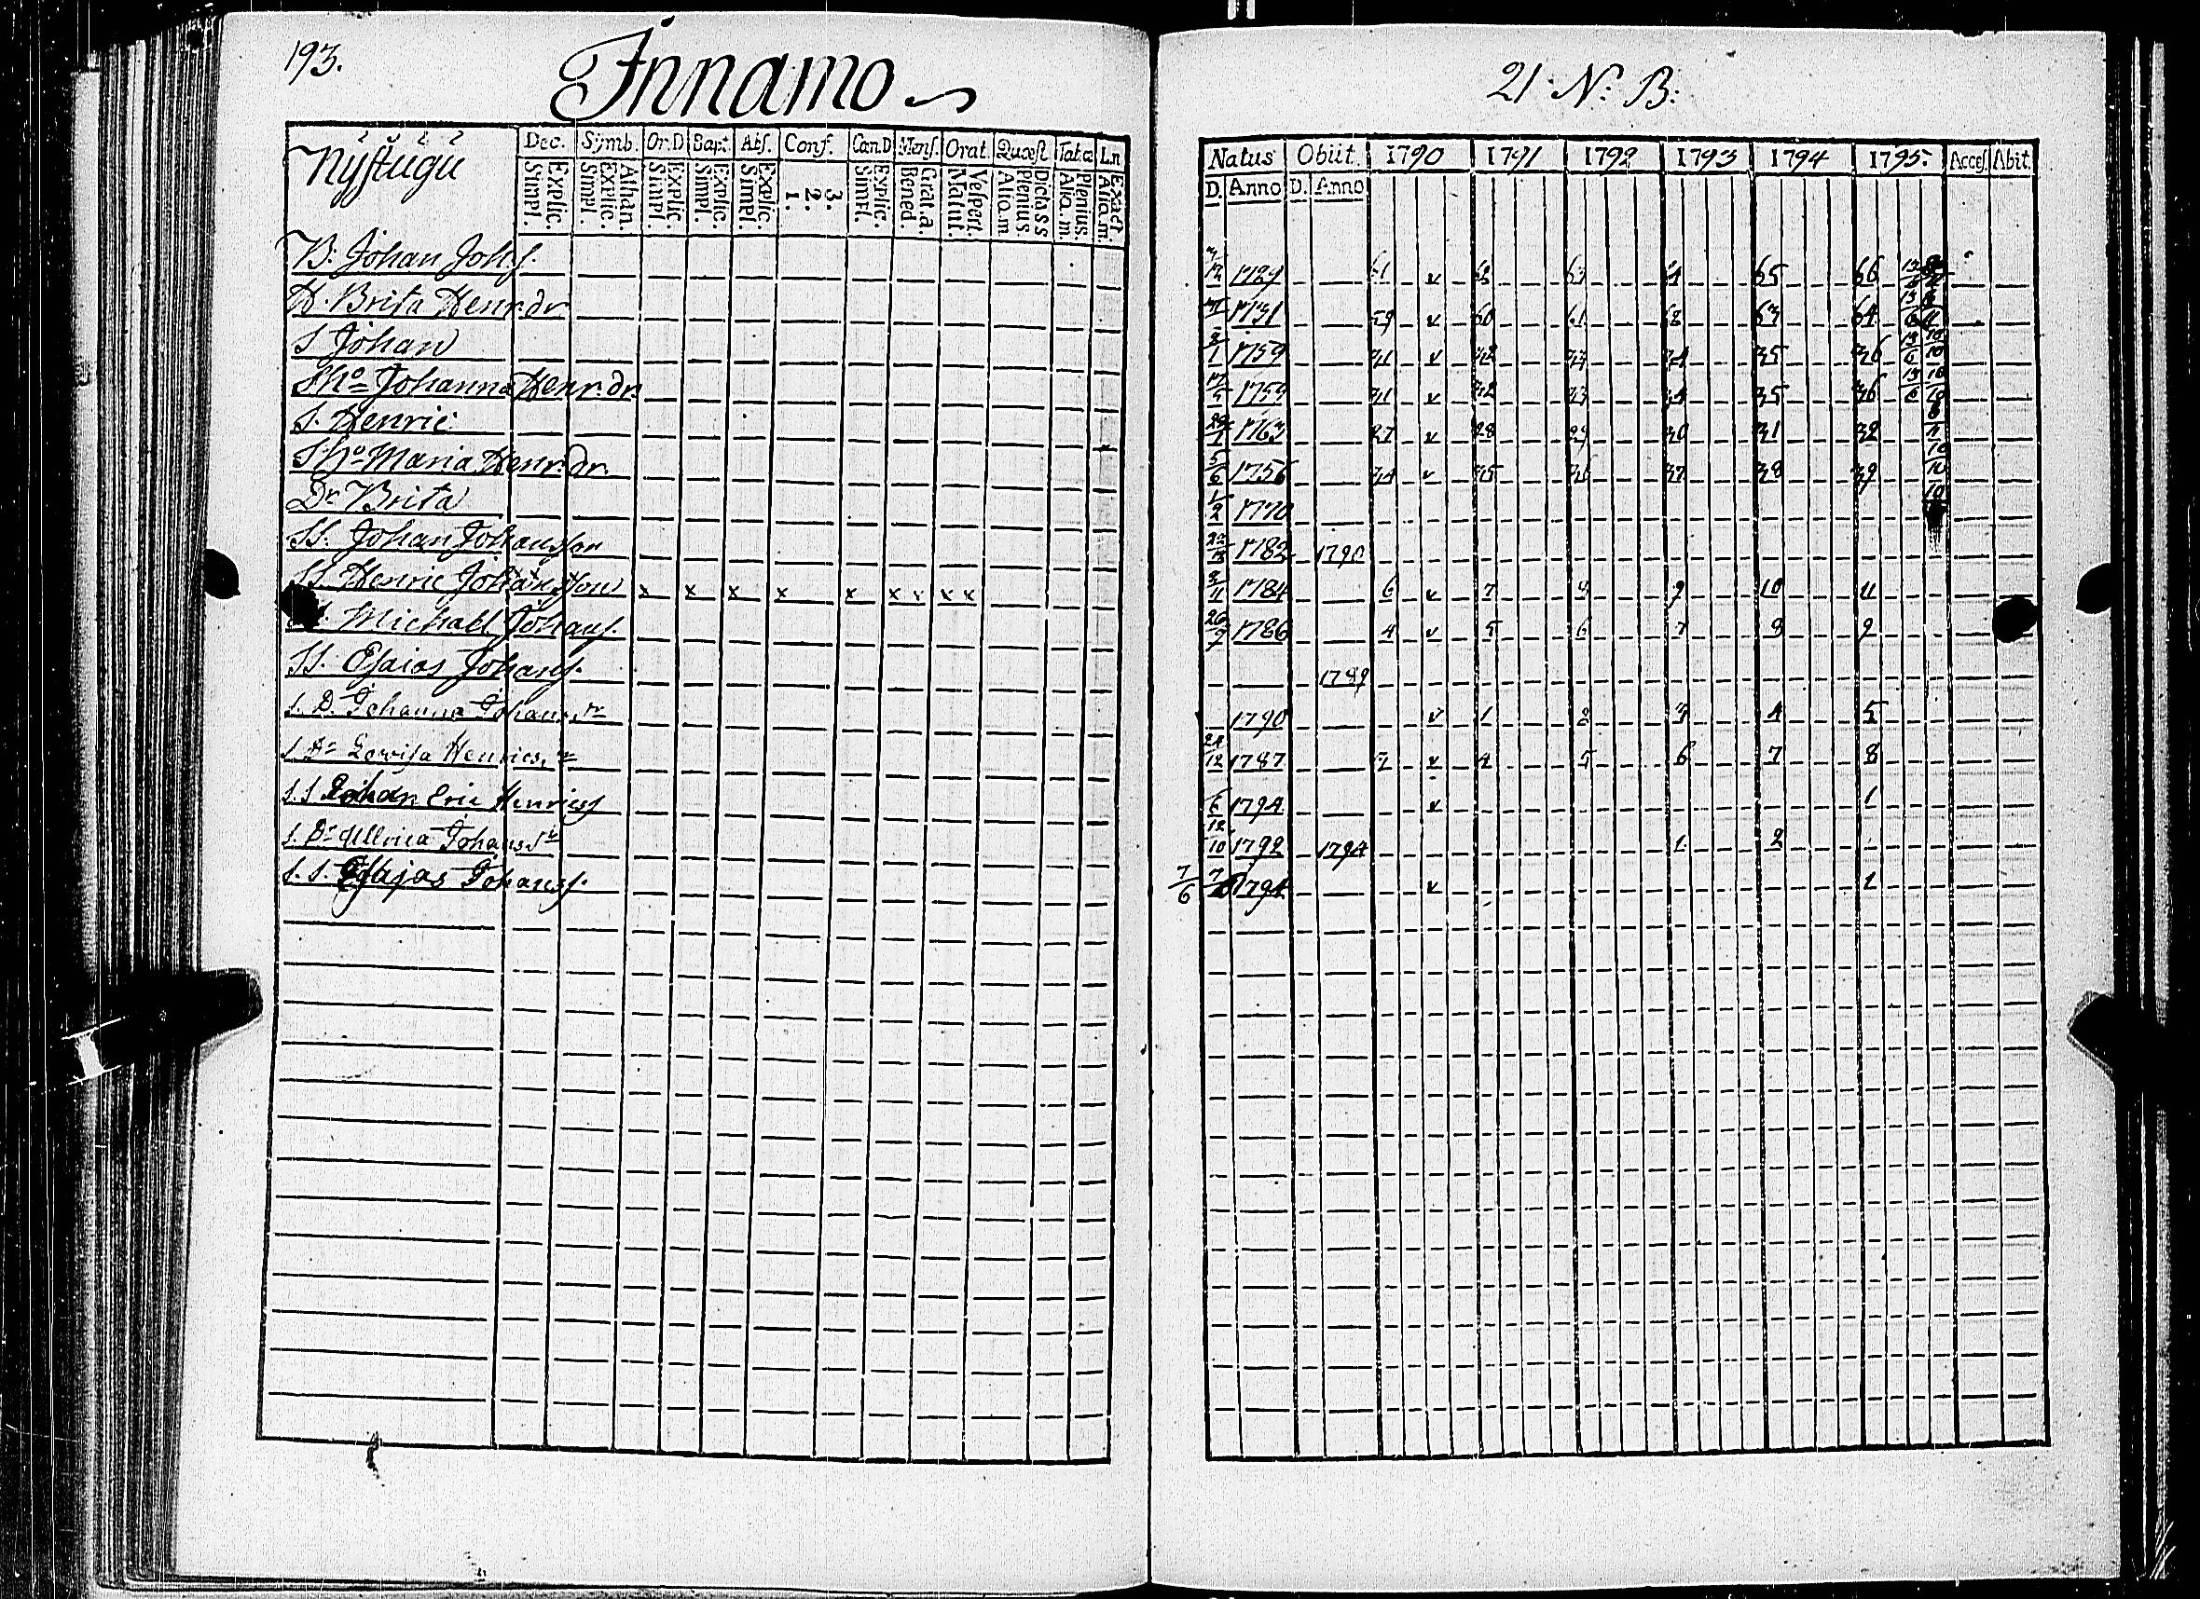 193.
Innamo
21 N: B:
Nÿstŭgŭ Dec. Sÿmb. Or.D Bapt. Abs. Conf. Cœn.D Mens. Orat. Quæst Tab.œ
Simpl. Explic. Simpl. Explic. Athan. Simpl. Explic. Simpl. Explic. Simpl. Explic. 1. 2. 3. Simpl. Explic. Bened. Grat.a. Matut. Vespert. Alio.m. Plenius. Dicta ss Alia.m. Plenius.
Natus Obiit 1790 1791 1792 1793 1794 1795. Access Abit
D. Anno D. Anno
B. Johan Johs. 1729 61 v 62 63 64 65 66
H. Brita Henr.dr 1731 59 v 60 61 62 63 64
S Johan 1759 31 v 32 33 34 35 36
Sho Johanna Henr.dr. 1759 31 v 32 33 34 35 36
S. Henric 1763 27 v 28 29 30 31 32
Sho Maria Henr.dr. 5/6 1756 34 v 35 36 37 38 39
Dr Brita 1/2 1770
SS. Johan Johansson 1782 1790
SS. Henric Johansson x x x x x x x x x 1784 6 v 7 8 9 10 11
Michael Johans. 26/9 1786 4 v 5 6 7 8 9
SS. Esaias Johans. 1789
S. D. Johanna Johans.dr 1790 v 1 2 3 4 5
S. Dr Lovisa Henrics.dr 1787 v 4 5 6 7 8
S. S Johan Eric Henricss 1794 v 1
S. Dr Ullrica Johans.dr 12/10 1792 1794 1. 2
S. S. Esajas Johanss. 7/6 1794 v 1